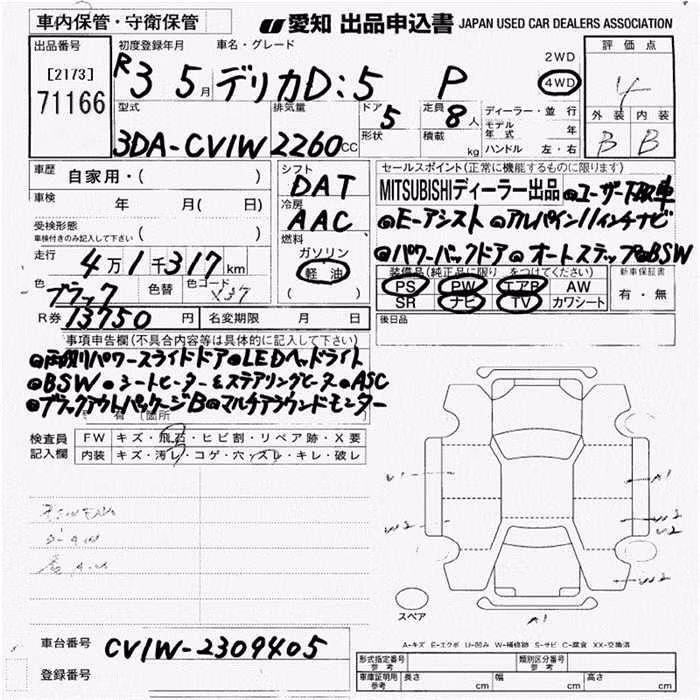 車内保管・守衛保管
愛知 出品申込書 JAPAN USED CAR DEALERS ASSOCIATION
出品番号 初度登録年月 車名・グレード 2WD 評価点
[2173] R3 5月 デリカD:5 P 4WD 4
71166 型式 排気量 ドア 5 定員 8人 ディーラー・並行 外装 内装
3DA-CV1W 2260CC 形状 積載 kg モデル年式 年 B B
ハンドル 左・右
車歴 自家用・( ) シフト DAT セールスポイント(正常に機能するものに限ります)
車検 年 月( 日) 冷房 AAC MITSUBISHIディーラー出品 ●ユーザー下取車
受検形態 ( ) ●E-アシスト ●アルパイン11インチナビ
車検付きのみ記入して下さい
走行 4万1千317km 燃料 ガソリン ●パワーバックドア ● オートステップ●BSW
色 ブラック 色替 色コード X37 軽油 ( ) 装備品(純正品に限り をつけてください) 新車保証書
PS PW エアB AW 有・無
SR ナビ TV カワシート
R券 13750円 名変期限 月 日 後日品
事項申告欄(不具合内容等は具体的に記入して下さい)
●両側パワースライドドア●LEDヘッドライト
●BSW ●シートヒーター&ステアリングヒーター●ASC
●ブラックアウトパッケージB●マルチアラウンドモニター
有 (箇所
検査員 FW キズ・飛石・ヒビ割・リペア跡・X要
記入欄 内装 キズ・汚レ・コゲ・穴・スレ・キレ・破レ
A1
W2
W2
A1
スペア
A-キズ E-エクボ U-凹み W-補修跡 S-サビ C-腐食 XX-交換済
車台番号 CV1W-2309405
登録番号
形式指定番号 参考 類別区分番号 参考
車庫証明用 参考 長さ cm 幅 cm 高さ cm